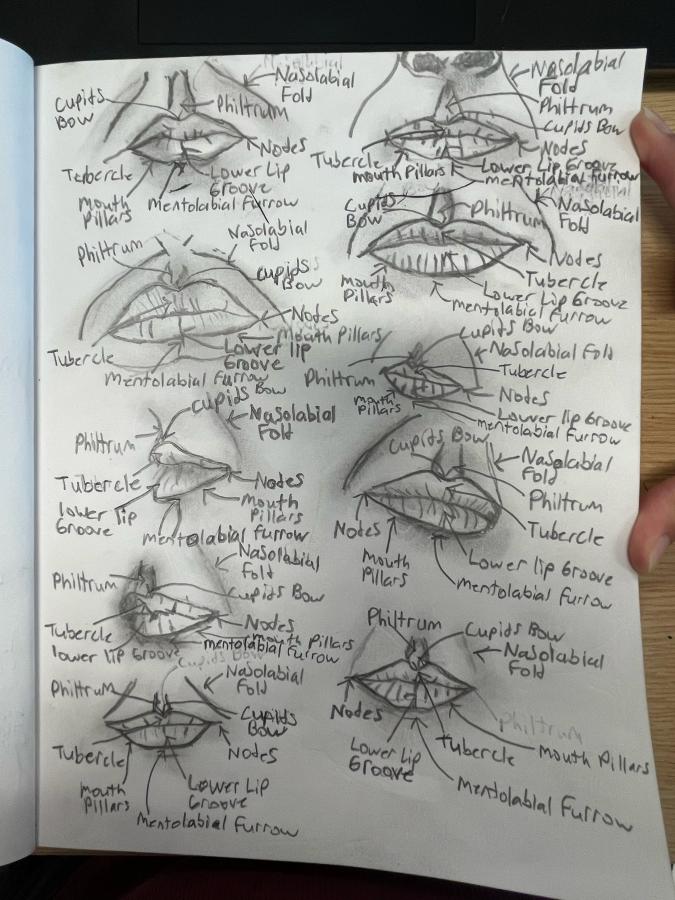 Nasolabial
Fold
Cupids
Bow
Philtrum
Nodes
Tubercle
Lower Lip
Groove
Mouth
Pillars
Mentolabial Furrow
Nasolabial
Fold
Philtrum
Cupids Bow
Nodes
Tubercle
mouth Pillars
Lower Lip Groove
mentolabial furrow
Nasolabial
Fold
Philtrum
Cupids
Bow
Nodes
Mouth Pillars
Tubercle
Lower lip
Groove
Mentolabial Furrow
Cupids
Bow
Philtrum
Nasolabial
Fold
Nodes
Tubercle
mouth
Pillars
Lower Lip Groove
mentolabial Furrow
Cupids Bow
Nasolabial
Fold
Philtrum
Tubercle
Nodes
lower lip
Groove
Mouth
Pillars
mentolabial furrow
Cupids Bow
Nasolabial Fold
Tubercle
Philtrum
Nodes
mouth
Pillars
Lower lip Groove
mentolabial Furrow
Nasolabial
Fold
Philtrum
Cupids Bow
Tubercle
Nodes
mouth Pillars
lower lip Groove
mentolabial Furrow
Cupids Bow
Nasolabial
Fold
Philtrum
Tubercle
Nodes
Mouth
Pillars
Lower lip Groove
mentolabial Furrow
Cupids Bow
Nasolabial
Fold
Philtrum
Cupids
Bow
Tubercle
Nodes
mouth
Pillars
Lower Lip
Groove
Mentolabial Furrow
Philtrum
Cupids Bow
Nasolabial
Fold
Nodes
Philtrum
Lower Lip
Groove
Tubercle
Mouth Pillars
Mentolabial Furrow